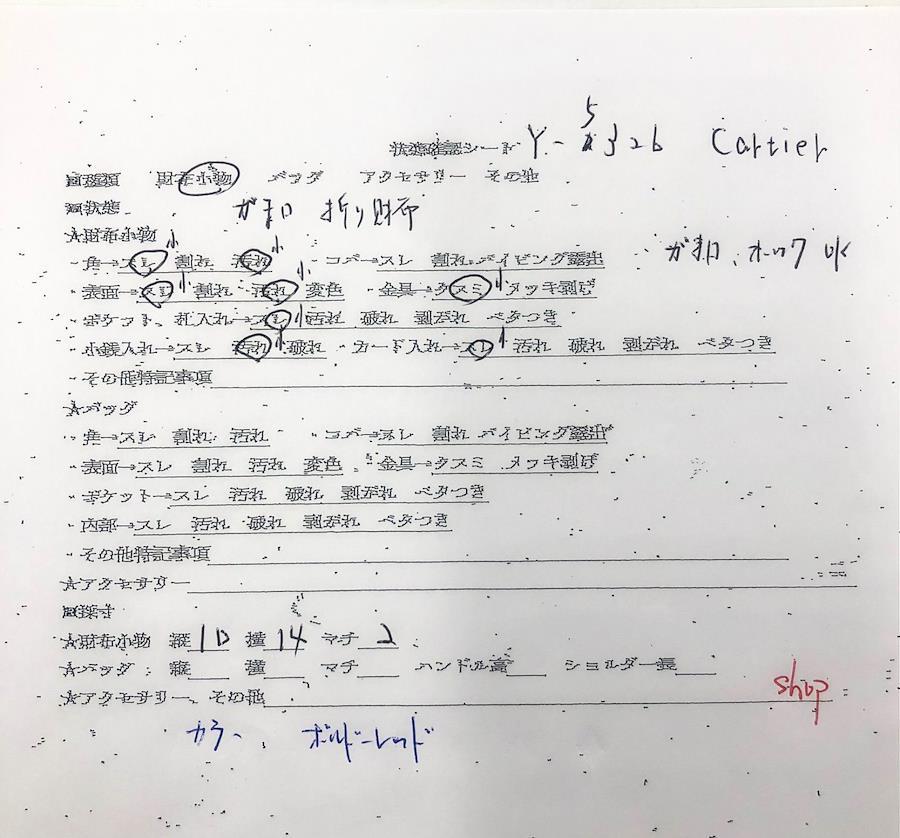 状態確認シート Y-5326 Cartier
□種類 財布小物 バッグ アクセサリー その他
□状態 がま口 折り財布
★財布小物
・角→スレ 小 割れ 汚れ 小 ・コバ→スレ 割れ パイピング露出 がま口、ホック OK
・表面→スレ 小 割れ 汚れ 小 変色 ・金具→クスミ 小 メッキ剥げ
・ポケット、札入れ→スレ 小 汚れ 破れ 剥がれ ベタつき
・小銭入れ→スレ 汚れ 小 破れ ・カード入れ→スレ 小 汚れ 破れ 剥がれ ベタつき
・その他特記事項
★バッグ
・角→スレ 割れ 汚れ ・コバ→スレ 割れ パイピング露出
・表面→スレ 割れ 汚れ 変色 ・金具→クスミ メッキ剥げ
・ポケット→スレ 汚れ 破れ 剥がれ ベタつき
・内部→スレ 汚れ 破れ 剥がれ ベタつき
・その他特記事項
★アクセサリー
□採寸
★財布小物 縦 10 横 14 マチ 2
★バッグ 縦 横 マチ ハンドル高 ショルダー長
★アクセサリー、その他
shop
カラー、ボルドーレッド